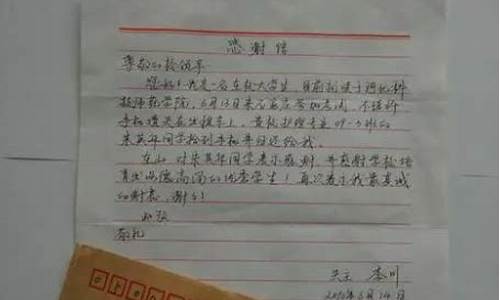 感谢信
尊敬的校领导
您好！我是一名在校大学生，目前就读于河北科
技师范学院，6月13日来石家庄参加考试，不慎将
手机遗失在出租车上，贵校护理专业09-3班的
同学捡到手机并归还给我。
在此，对 同学表示感谢，并感谢学校培
育出品德高尚的优秀学生！再次表示我最真诚
的谢意，谢谢！
此致
敬礼
失主 李川
2010年6月14日